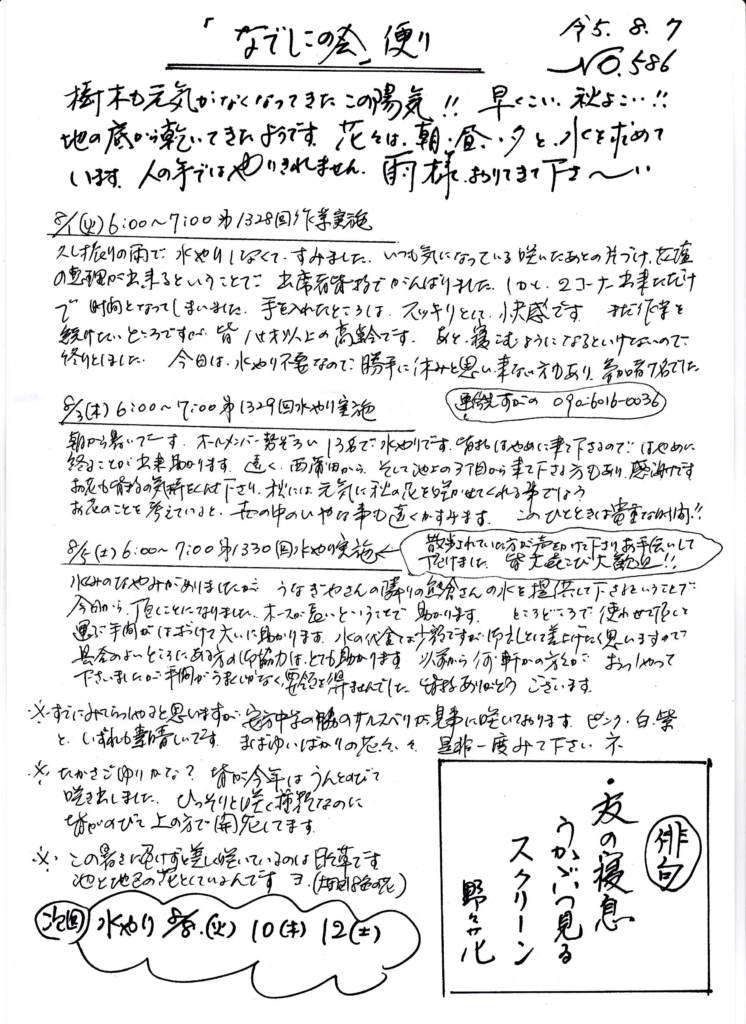 「なでしこの会」便り
令5.8.7
NO.586
樹木も元気がなくなってきたこの陽気!! 早くこい、秋よこい!!
地の底から乾いてきたようです。花々は、朝・昼・夕と、水を求めて
います。人の手ではやりきれません。雨様、おりてきて下さ〜い
8/1(火)6:00〜7:00 第1328回作業実施
久し振りの雨で水やりしなくて、すみました。いつも気になっている咲いたあとの片づけ、
の整理が出来るということで出席者皆様でがんばりました。しかし、2コーナー出来ただけ
で時間となってしまいました。手を入れたところは、スッキリとして、快感です。まだ作業を
続けたいところですが、皆 以上の高齢です。あと、寝こむようになるといけないので、
終りとしました。今日は、水やり不要なので、勝手に休みと思い来ない方もあり、参加者7名でした
8/3(木)6:00〜7:00 第1329回水やり実施
連絡 すがの 090-6016-0036
朝から暑いでーす。オールメンバー勢ぞろい13名で水やりです。皆はやめに来て下さるのではやめに
終ることが出来助かります。遠く、西蒲田から、そして池上の3丁目から来て下さる方もあり、感謝です
お花も皆様の気持をくんで下さり、秋には元気に秋の花を咲かせてくれる事でしょう
お花のことを考えていると、世の中のいやな事も遠くかすみます。このひとときは貴重な時間!!
8/5(土)6:00〜7:00 第1330回水やり実施
散歩されていた方が声を掛けて下さりお手伝いして
下さいました。皆大喜こび大歓迎!!
水くみのなやみがありましたが、うなぎやさんの隣りの さんの水を提供して下されということで
今日から、頂くことになりました。ホースが長いということで助かります。ところどころで使わせて頂くと
運ぶ手間がはぶけて大いに助かります。水の代金は少額ですがお礼として差上げたく思いますので
具合のよいところにある方の御協力は、とても助かります。以前から何軒かの方々が、おっしゃって
下さいましたが手間がうまくいかなく、要領を得ませんでした。皆様ありがとうございます。
※すでにみてらっしゃると思いますが、 中学の脇のサルスベリが見事に咲いております。ピンク・白・紫
と、いずれも素晴しいです。まばゆいばかりの花々々 是非一度みて下さいネ
※たかさごゆりかな? 背が今年はうんとのびて
咲き出しました。ひっそりと咲く種類なのに
背がのびて上の方で開花してます。
※この暑さに負けずと美しく咲いているのは日々草です
池上地区の花としているんです ヨ。
次回 水やり 8/8.(火) 10(木) 12(土)
俳句
・友の寝息
うかがいつ見る
スクリーン
野々花